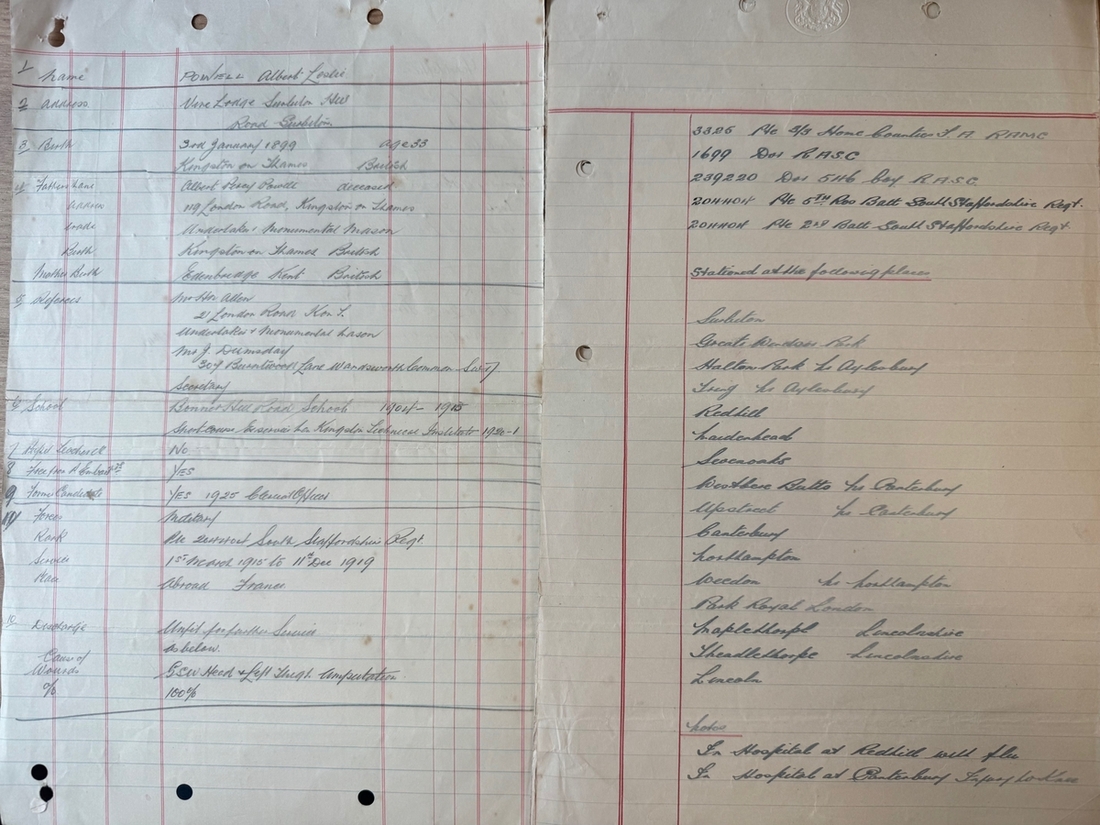 1 Name POWELL Albert Leslie
2 Address Vere Lodge Surbiton Hill
Road Surbiton
3 Birth 3rd January 1899 age 33
Kingston on Thames British
4 Fathers Name Albert Percy Powell deceased
Address 119 London Road, Kingston on Thames
trade Undertaker Monumental Mason
Birth Kingston on Thames British
Mother Birth Edenbridge Kent British
5 Referees Mr Allen
21 London Road Kon T.
Undertaker & Monumental Mason
Mr J. Dumsday
309 Burntwood Lane Wandsworth Common
Secretary
6 School Bonner Hill Road School 1904 - 1915
Short course Kingston Technical Institute 1920-1
7 No
8 Free from YES
9 Former Candidate YES 1925 Clerical Officer
Forces Military
Rank Pte South Staffordshire Regt.
Service 1st March 1915 to 11th Dec 1919
Abroad France
10 Discharge Unfit for further Service
as below
Cause of
Wounds GSW Head & Left Thigh Amputation
% 100%
3326 Pte 3/3 Home Counties F. A RAMC
1699 Dvr RASC
239220 Dvr 546 Coy RASC
204404 Pte 5TH Res Batt South Staffordshire Regt.
204404 Pte 2nd Batt South Staffordshire Regt
Stationed at the following places
Surbiton
Great Windsor Park
Halton Park Nr Aylesbury
Tring Nr Aylesbury
Redhill
Maidenhead
Sevenoaks
Westbere Butts Nr Canterbury
Upstreet Nr Canterbury
Canterbury
Northampton
Weedon Nr Northampton
Park Royal London
Maplethorpe Lincolnshire
Theddlethorpe Lincolnshire
Lincoln
Notes
In Hospital at Redhill with flu
In Hospital at Canterbury Injury to Knee